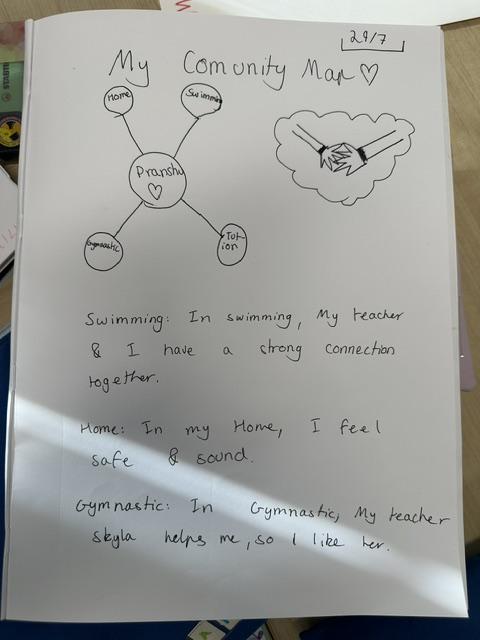 29/7
My Comunity Map ♡
Home
Swimming
Pranshu
♡
Gymnastic
Tut-
ion
Swimming: In swimming, My teacher
& I have a strong connection
together.
Home: In my Home, I feel
safe & sound.
Gymnastic: In Gymnastic, My teacher
skyla helps me, so I like her.